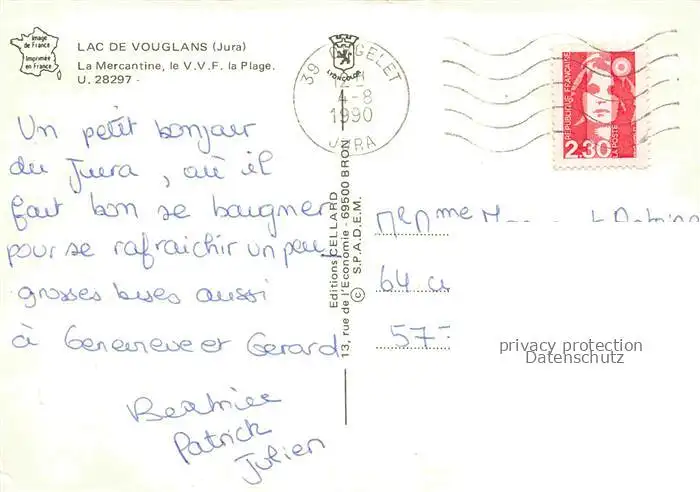 Image
de France
Imprimée
en France
LAC DE VOUGLANS (Jura)
La Mercantine, le V.V.F. la Plage.
U. 28297 -
LYONCOLOR
39 ORGELET
12 H
4-8
1990
JURA
RÉPUBLIQUE FRANÇAISE
LA POSTE
2,30
Un petit bonjour
du Jura, où il
fait bon se baigner
pour se rafraichir un peu
grosses bises aussi
à Genevieve et Gerard
Beatrice
Patrick
Julien
Editions CELLARD
13, rue de l'Economie - 69500 BRON
© S.P.A.D.E.M.
Mr et Mme
64
57
privacy protection
Datenschutz